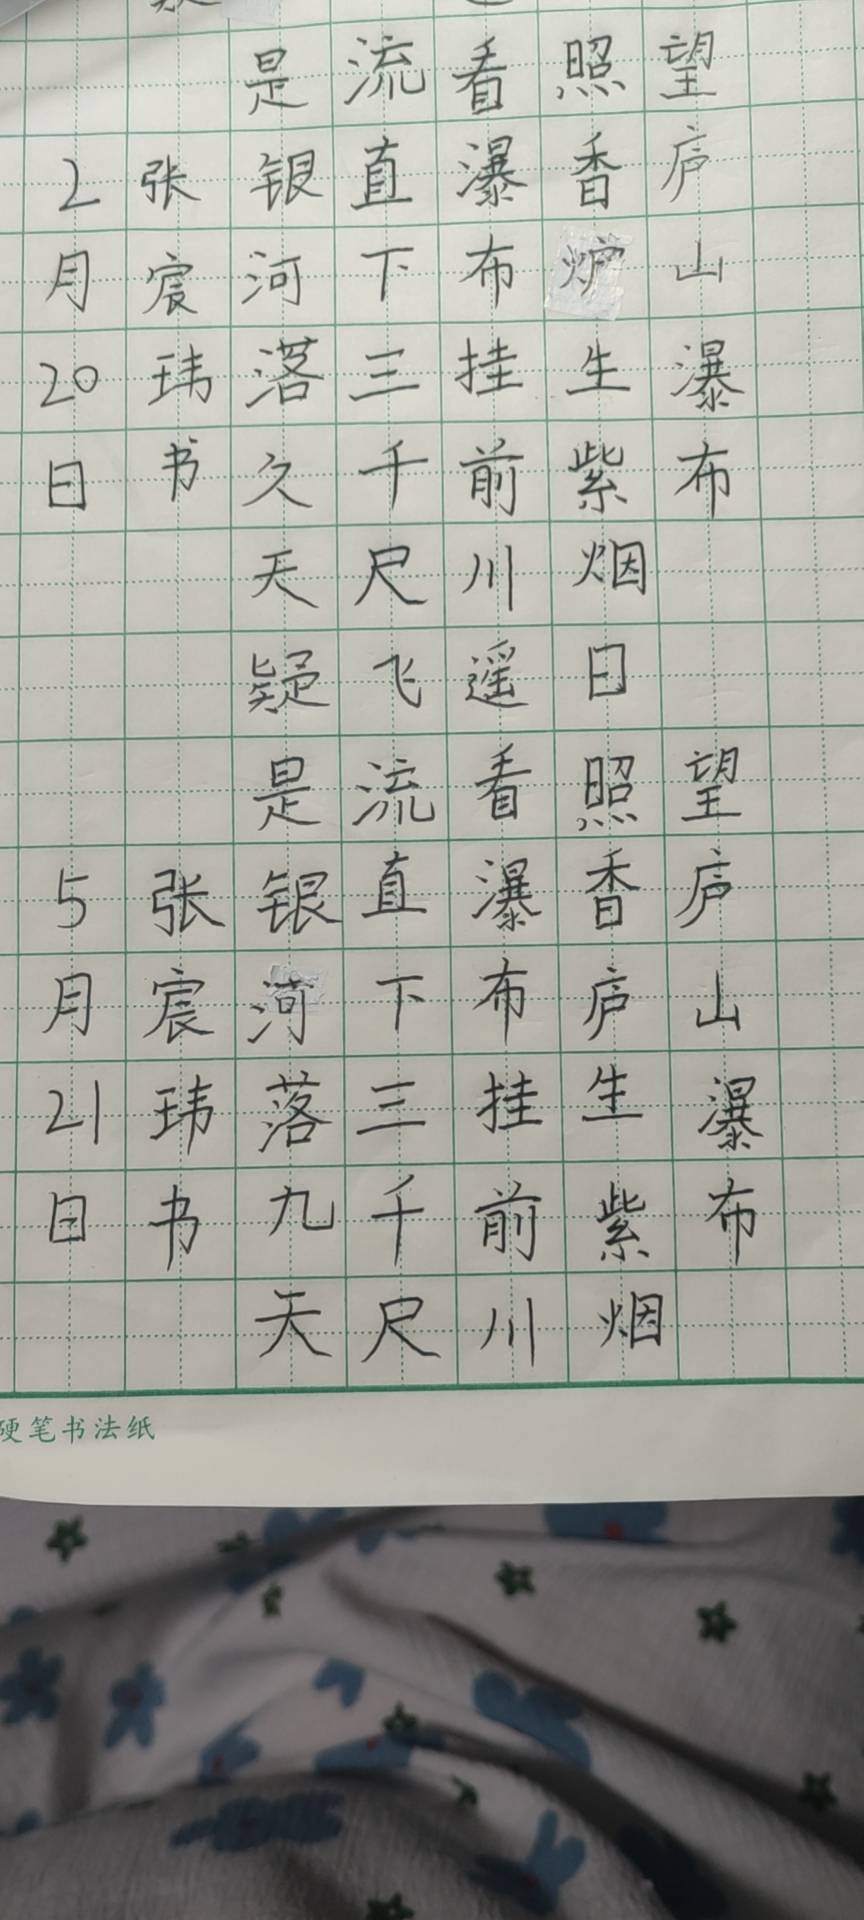 望庐山瀑布
照香炉生紫烟
看瀑布挂前川
流直下三千尺
是银河落久天
张宸玮书
2月20日
望庐山瀑布
日照香庐生紫烟
遥看瀑布挂前川
飞流直下三千尺
疑是银河落九天
张宸玮书
5月21日
硬笔书法纸